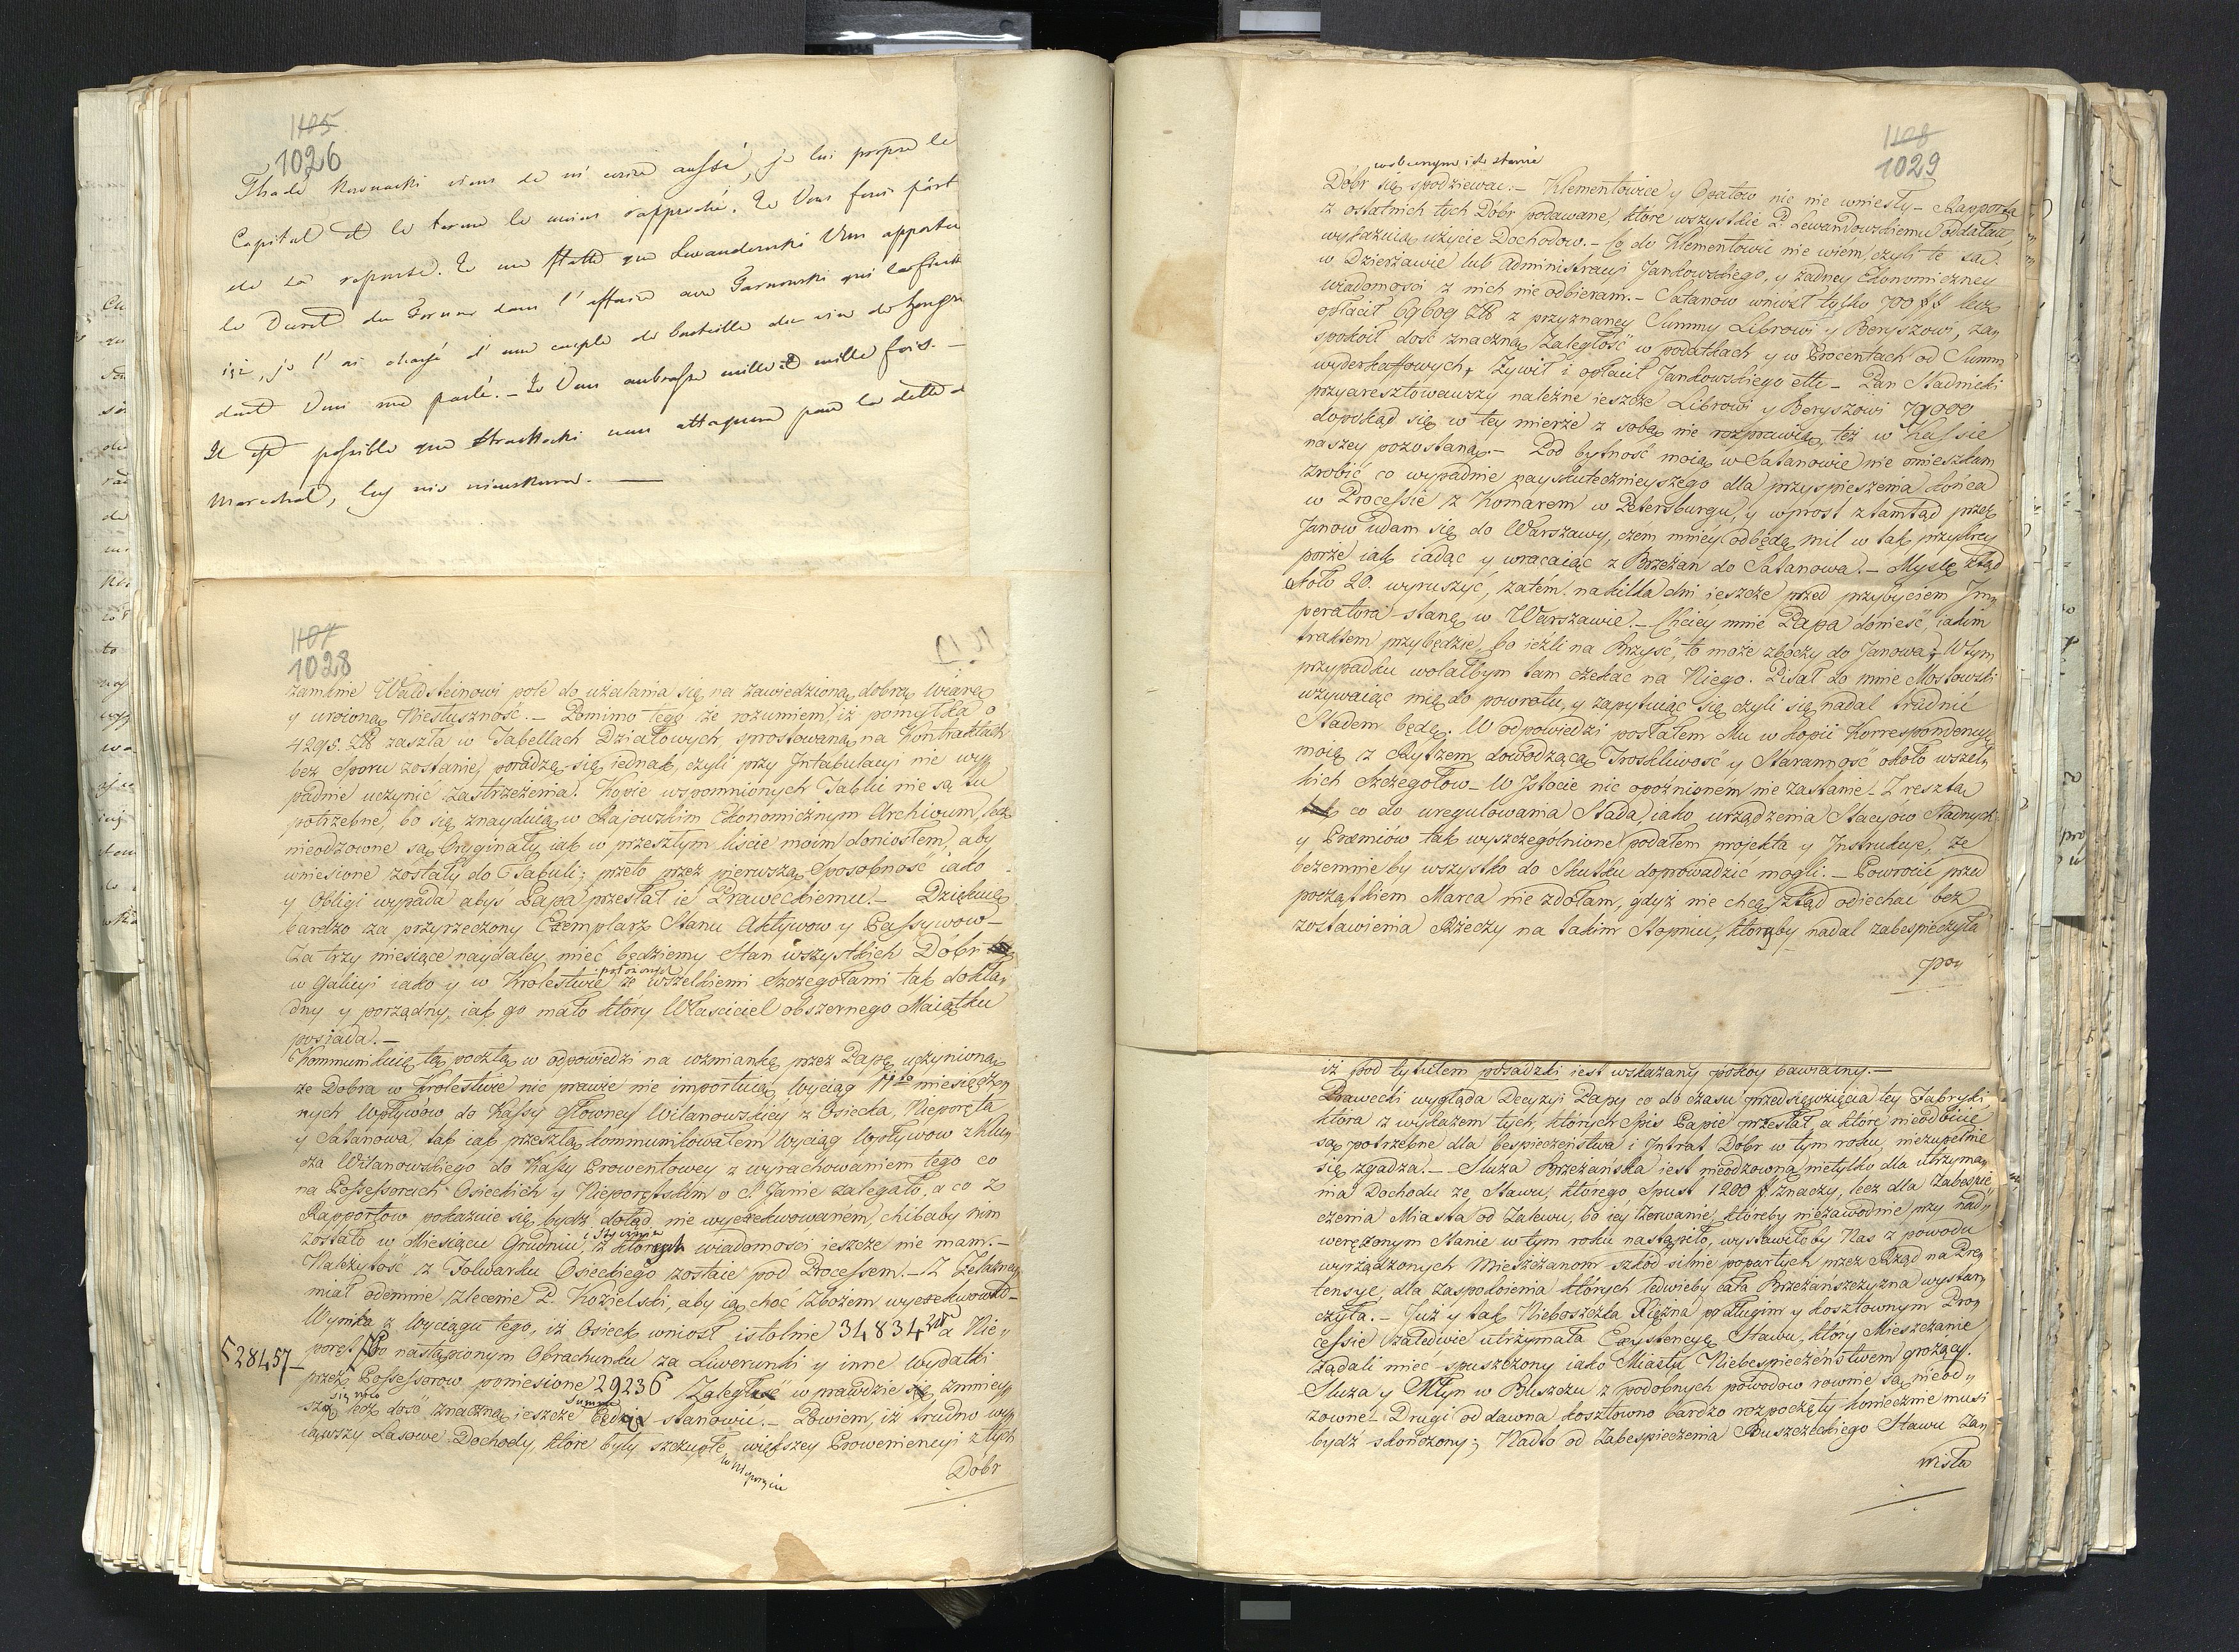 1105
1026
Thadé vient de m'ecrire aussi, je lui propose le
Capital et le terme le moins rapproché. Je Vous ferai part
de sa reponse. Je me flatte que Lewandowski Vous apportera
le Decret du Forum dans l'affaire avec Tarnowski qui
ici, je l'ai chargé d'une couple de bouteilles du vin de Hongrie
dont Vous me parlé. — Je Vous embrasse mille et mille fois. —
Il est possible que nous attaquera pour la dette du
Marechal,
1107
1028
zamknie Waldsteinowi pole do użalania się na zawiedzioną dobrą Wiarę
y uroioną Niesłuszność. — Pomimo tego że rozumiem, iż pomyłka o
4295. Zł zaszła w Tabellach Działowych sprostowaną na Kontraktach
bez Sporu zostanie, poradzę się iednak, czyli przy Intabulacyi nie wy„
padnie uczynić zastrzeżenia. Kopie wspomnionych Tablic nie są tu
potrzebne, bo się znayduią w Rajowskim Ekonomicznym Archivum, lecz
nieodzowne są Oryginały, iak w przeszłym liście moim doniosłem, aby
wniesione zostały do Tabuli; przeto przez pierwszą Sposobność iako
y Obligi wypada abyś Papa przesłał ie Prawеckiemu. — Dziękuię
bardzo za przyrzeczony Exemplarz Stanu Aktywow y Passywow —
Za trzy miesiące naydaley mieć będziemy Stan wszystkich Dóbr
w Galicyi iako y w Krolestwie położonych ze wszelkiemi szczegołami tak dokła„
dny y porządny, iak go mało ktory Właściciel obszernego Maiątku
posiada. —
Kommunikuię tą pocztą w odpowiedzi na wzmiankę przez Papę uczynioną
że Dobra w Krolestwie nic prawie nie importuią, Wyciąg 11to miesięczn
nych Wpływów do Kassy Głowney Wilanowskiey z Osiecka, Nieporęta
y Satanowa, tak iak przeszłą kommunikowałem Wyciąg Wpływow z Klu„
cza Wilanowskiego do Kassy Prowentowey z wyrachowaniem tego co
na Possessorach Osieckich y Nieporętskim o St Janie zalegało, a co z
Rapportow pokazuie się bydź dotąd nie wyexekwowaném, chibaby nim
zostało w Miesiącu Grudniu, i Styczniu z ktorych wiadomosci ieszcze nie mam. —
Należytość z Folwarku Osieckiego zostaie pod Processem. — Z Żelazney
miał odemnie Zlecenie P. Kozielski, aby ią choć Zbożem wyexekwował —
Wynika z Wyciągu tego, iż Osieck wniosł istotnie 34834 złł a Nie„
28457 — poręt po nastąpionym Obrachunku za Liwerunki y inne Wydatki
przez Possessorow poniesione 29236 Zaległość wprawdzie zmniey„
szą się nieco lecz dość znaczną ieszcze Summę będzie stanowić. — Powiem, iż trudno wy„
iąwszy Lasowe Dochody, które były szczupłe w Nieporęcie większey Prowenienciyi z tych
Dobr
1108
1029
w obecnym ich stanie
Dóbr się spodziewać. — Klementowice y Opatow nic nie wniesły — Rapporta
z ostatnich tych Dóbr podawane, które wszystkie P. Lewandowskiemu oddałem,
wykazuią użycie Dochodow. — Co do Klementowic nie wiém, czyli te są
w Dzierżawie lub Administracyi Jankowskiego, y żadney Ekonomiczney
wiadomosci z nich nie odbieram. — Satanow wniosł tylko 700 ## lecz
opłacił 69609 Zł z przyznaney Summy Librowi y Beryszowi, zas„
spokoił dość znaczną Zaległość w podatkach y w Procentach od Summ
wyderkaffowych, Żywił i opłacił Jankowskiego etc — Pan Stadnicki
przyaresztowawszy należne ieszcze Librowi y Beryszowi 79000
dopokąd się w tey mierze z sobą nie rozprawią, też w Kassie
naszey pozostaną. — Pod bytność moią w Satanowie nie omieszkam
zrobić co wypadnie nayskutecznieyszego dla przyspieszenia końca
w Processie z Komarem w Petersburgu, y wprost ztamtąd przez
Janow udam się do Warszawy, czém mniéy odbędę mil w tak przykrey
porze iak iadąc y wracaiąc z Brzeżan do Satanowa. — Myslę ztąd
około 20. wyruszyć, zatém na kilka dni ieszcze przed przybyciem Im„
peratora stanę w Warszawie. — Chciey mnie Papa donieść, iakim
traktem przybędzie, bo ieżli na Brzyść, to może zboczy do Janowa; W tym
przypadku wolałbym tam czekać na Niego. Pisał do mnie Mostowski
wzywaiąc mię do powrotu, y zapytuiąc się czyli się nadal trudnić
Stadem będę. W odpowiedzi posłałem Mu w kopii Korrespondencyę
moią z Rytzem dowodzącą Troskliwość y Staranność około wszel„
kich szczegołow — W Istocie nic opóźnionem nie zastanie — Z resztą
co do uregulowania Stada, iako urządzenia Stacyów Stadnych
y Præmiów tak wyszczegolnione podałem projekta y Instrukcye, że
bezemnieby wszystko do Skutku doprowadzić mogli. — Powrócić przed
początkiem Marca nie zdołam, gdyż nie chcę ztąd odiechać bez
zostawienia Rzeczy na takim Stopniu, któryby nadal zabespieczyła
po„
iż pod tytułem posadzki iest wskazany pokoy bawialny. —
Prawecki wygląda Decyzyi Papy co do czasu przedsięwzięcia tey Fabryki
ktora z wykazem tych, których Spis Papie przesłał, a które nieodbicie
są potrzebne dla bespieczeństwa i Intrat Dóbr w tym roku, niezupełnie
się zgadza. — Sluza Brzeżańska iest nieodzowną nietylko dla utrzyma„
nia Dochodu ze Stawu, którego Spust 1200 # znaczy, lecz dla Zabespie„
czenia Miasta od Zalewu, bo iey Zerwanie, któreby niezawodnie przy nad„
weręzonym Stanie w tym roku nastąpiło, wystawiłoby Nas z powodu
wyrządzonych Mieszczanom szkód silnie popartych przez Rząd na Pre„
tensye, dla zaspokoienia których ledwieby cała Brzeżańszczyzna wystar„
czyła. — Już y tak Nieboszczka Xiężna po długim y kosztownym Pro„
cessie zaledwie utrzymała Exystencyę Stawu, który Mieszczanie
żądali mieć spuszczony iako Miastu Niebespieczeństwem grożący.
Sluza y Młyn w Buszczu z podobnych powodow rownie są nieod„
zowne — Drugi od dawna kosztowno bardzo rozpoczęty koniecznie musi
bydź skończony; Nadto od Zabespieczenia Buszczeckiego Stawu za„
wisła